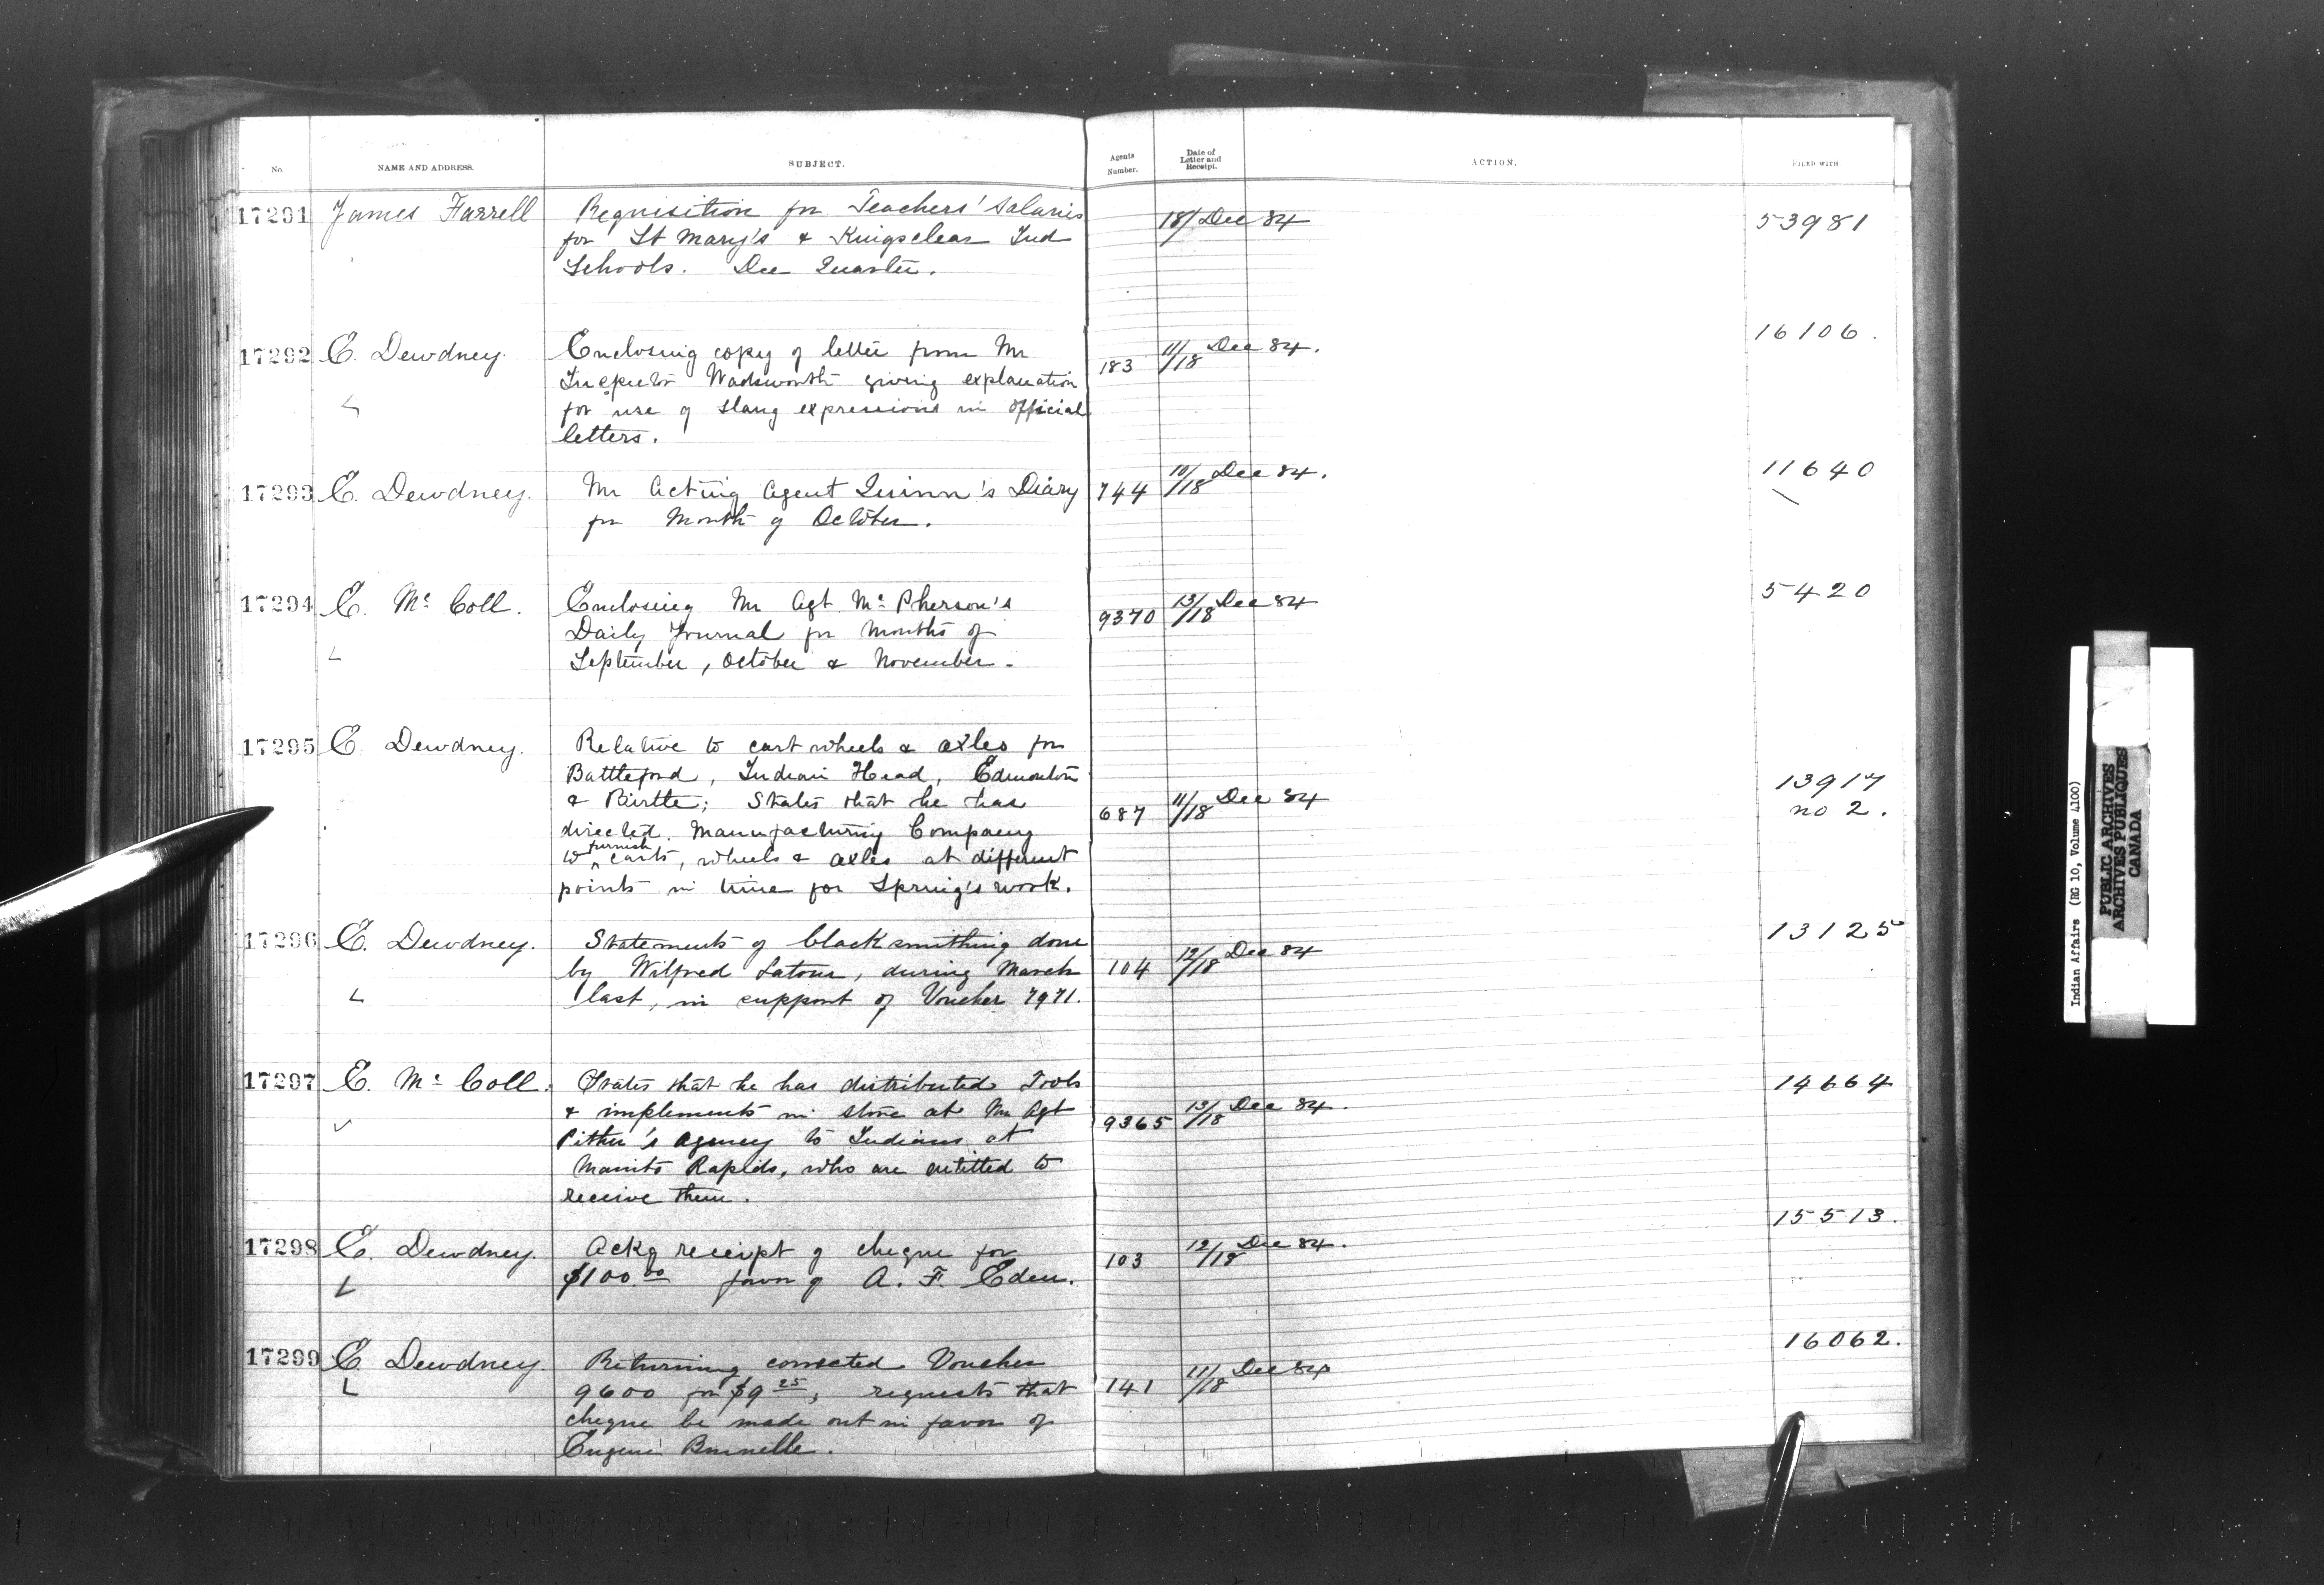 No. NAME AND ADDRESS. SUBJECT. Agents Number. Date of Letter and Receipt. ACTION. FILED WITH
17291 James Farrell Requisition for Teachers' Salaries 18/ Dec 84 53981
for St Mary's & Kingsclear Ind
Schools. Dec Quarter.
17292 E. Dewdney. Enclosing copy of letter from Mr 183 11/18 Dec 84. 16106.
Inspector Wadsworth giving explanation
for use of slang expressions in official
letters.
17293 E. Dewdney. Mr Acting Agent Quinn's Diary 744 10/18 Dec 84. 11640
for Month of October.
17294 E. Mc Coll. Enclosing Mr Agt Mc Pherson's 9370 13/18 Dec 84 5420
Daily Journal for Months of
September, October & November.
17295 E. Dewdney. Relative to cart wheels & axles for
Battleford, Indian Head, Edmonton 13917
& Birtle; States that he has 687 11/18 Dec 84 no 2.
directed Manufacturing Company
to furnish carts, wheels & axles at different
points in time for Spring's work.
17296 E. Dewdney. Statements of blacksmithing done 13125
by Wilfred Latour, during March 104 12/18 Dec 84
last, in support of Voucher 7971.
17297 E. Mc Coll. States that he has distributed Tools 14664
& implements in store at Mr Agt 9365 13/18 Dec 84.
Pither's Agency to Indians at
Manito Rapids, who are entitled to
receive them.
17298 E. Dewdney. Ackg receipt of cheque for 103 12/18 Dec 84. 15513.
$100.00 favor of A. F. Eden.
17299 E Dewdney. Returning corrected Voucher 16062.
9600 for $9 25; requests that 141 11/18 Dec 84
cheque be made out in favor of
Eugene Brunelle.
Indian Affairs (RG 10, Volume 4100)
PUBLIC ARCHIVES
ARCHIVES PUBLIQUES
CANADA